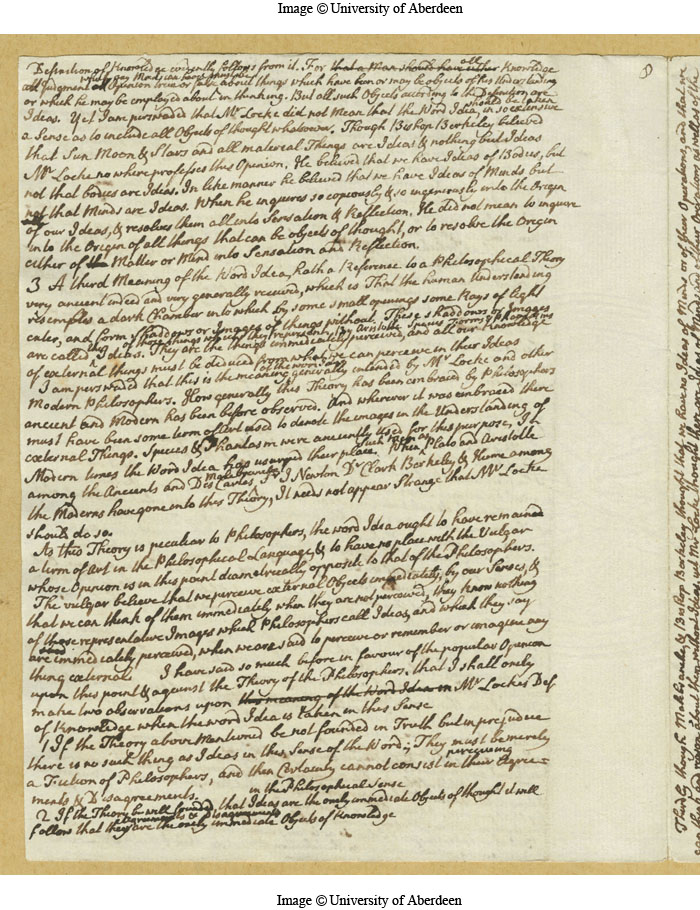 Image © University of Aberdeen
8
Definition of Knowledge evidently follows from it. For that a Man should have either Knowledge
all
Judgment or Opinion about things which have been or may be objects of his Understanding
or which he may be employed about in thinking. But all such Objects according to the Definition are
should be taken
Ideas. Yet I am perswaded that Mr Locke did not Mean that the Word Idea, in so extensive
a Sense as to include all Objects of thought whatsoever. Though Bishop Berkeley believed
that Sun Moon & Stars and all material Things are Ideas & nothing but Ideas
Mr Locke no where professes this Opinion. He believed that we have Ideas of Bodies, but
not that bodies are Ideas. In like manner he believed that we have Ideas of Minds but
not that Minds are Ideas. When he inquires so copiously, & so ingeniously into the Origin
of our Ideas, & resolves them all into Sensation & Reflection. He did not mean to inquire
into the Origin of all things that can be objects of thought, or to resolve the Origin
either of Matter or Mind into Sensation and Reflection.
3 A third Meaning of the Word Idea, hath a Reference to a Philosophical Theory
very ancient indeed and very generally received, which is That the human Understanding
resembles a dark Chamber into which by some small openings some Rays of light
enter, and form Shaddows or Images of things without. These Shaddows or Images
of those things which they represent, by Aristotle Species Forms & Phantasms
are called Ideas. They are the things immediately perceived, and all our Knowledge
of external things must be deduced from what we can perceive in their Ideas
of the word Idea
I am perswaded that this is the meaning generally intended by Mr Locke and other
Modern Philosophers. How generally this Theory has been embraced by Philosophers
ancient and Modern has been before observed. And wherever it was embraced there
must have been some term of Art used to denote the images in the Understanding of
external Things. Species & Phantasm were anciently Used for this purpose, In
Modern times the Word Idea has usurped their place. When such Men as Plato and Aristotle
Malebranche
among the Ancients and Des Cartes, Sr I Newton Dr Clark Berkeley, & Hume among
the Moderns have gone into this Theory, It needs not appear Strange that Mr Locke
should do so.
As this Theory is peculiar to Philosophers, the word Idea ought to have remained
a term of Art in the Philosophical Language, & to have no place with the Vulgar
whose Opinion is in this point diametrically opposite to that of the Philosophers.
The vulgar believe that we perceive external Objects immediately, by our Senses, &
that we can think of them immediately when they are not perceived, they know nothing
of those representative Images which Philosophers call Ideas, and which they say
are immediately perceived, when we are said to perceive or remember or imagine any
thing external I have said so much before in favour of the popular Opinion
upon this point & against the Theory of the Philosophers. that I shall onely
make two observations upon this meaning of the word Idea in Mr Lockes Def
of Knowledge when the word Idea is taken in this Sense
1 If the Theory above Mentioned be not founded in Truth but in prejudice
there is no such thing as Ideas in this Sense of the Word; They must be merely
perceiving
a Fiction of Philosophers, and then Certainty cannot consist in their Agree=
ments & Disagreements.
in the Philosophical Sense
2 If the Theory be well founded, that Ideas are the onely immediate Objects of thought it will
agreements & Disagreements
follow that they are the onely immediate Objects of Knowledge
Thirdly though Malebranche, & Bishop Berkeley thought that we have no Ideas of Minds, or of their Operations, and that we
Image © University of Aberdeen